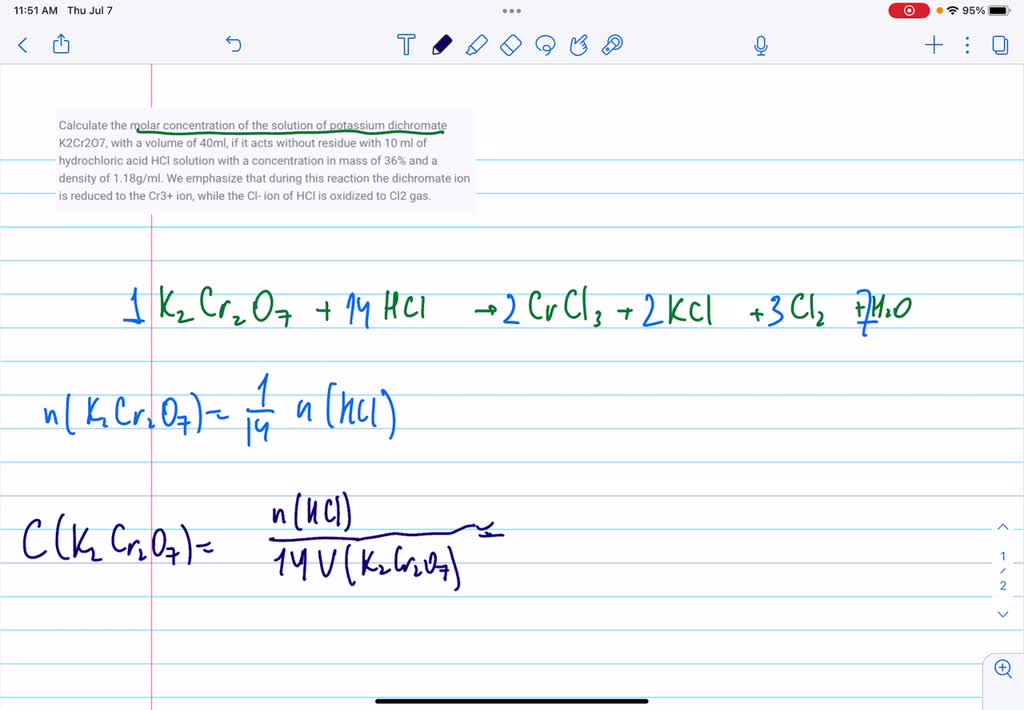 11:51 AM Thu Jul 7
95%
Calculate the molar concentration of the solution of potassium dichromate
K2Cr2O7, with a volume of 40ml, if it acts without residue with 10 ml of
hydrochloric acid HCl solution with a concentration in mass of 36% and a
density of 1.18g/ml. We emphasize that during this reaction the dichromate ion
is reduced to the Cr3+ ion, while the Cl- ion of HCl is oxidized to Cl2 gas.
1 K₂Cr₂O₇ + 14 HCl → 2 CrCl₃ + 2 KCl + 3 Cl₂ + 7 H₂O
n(K₂Cr₂O₇) = 1/14 n(HCl)
C(K₂Cr₂O₇) = n(HCl) / 14 V(K₂Cr₂O₇) =
1
/
2